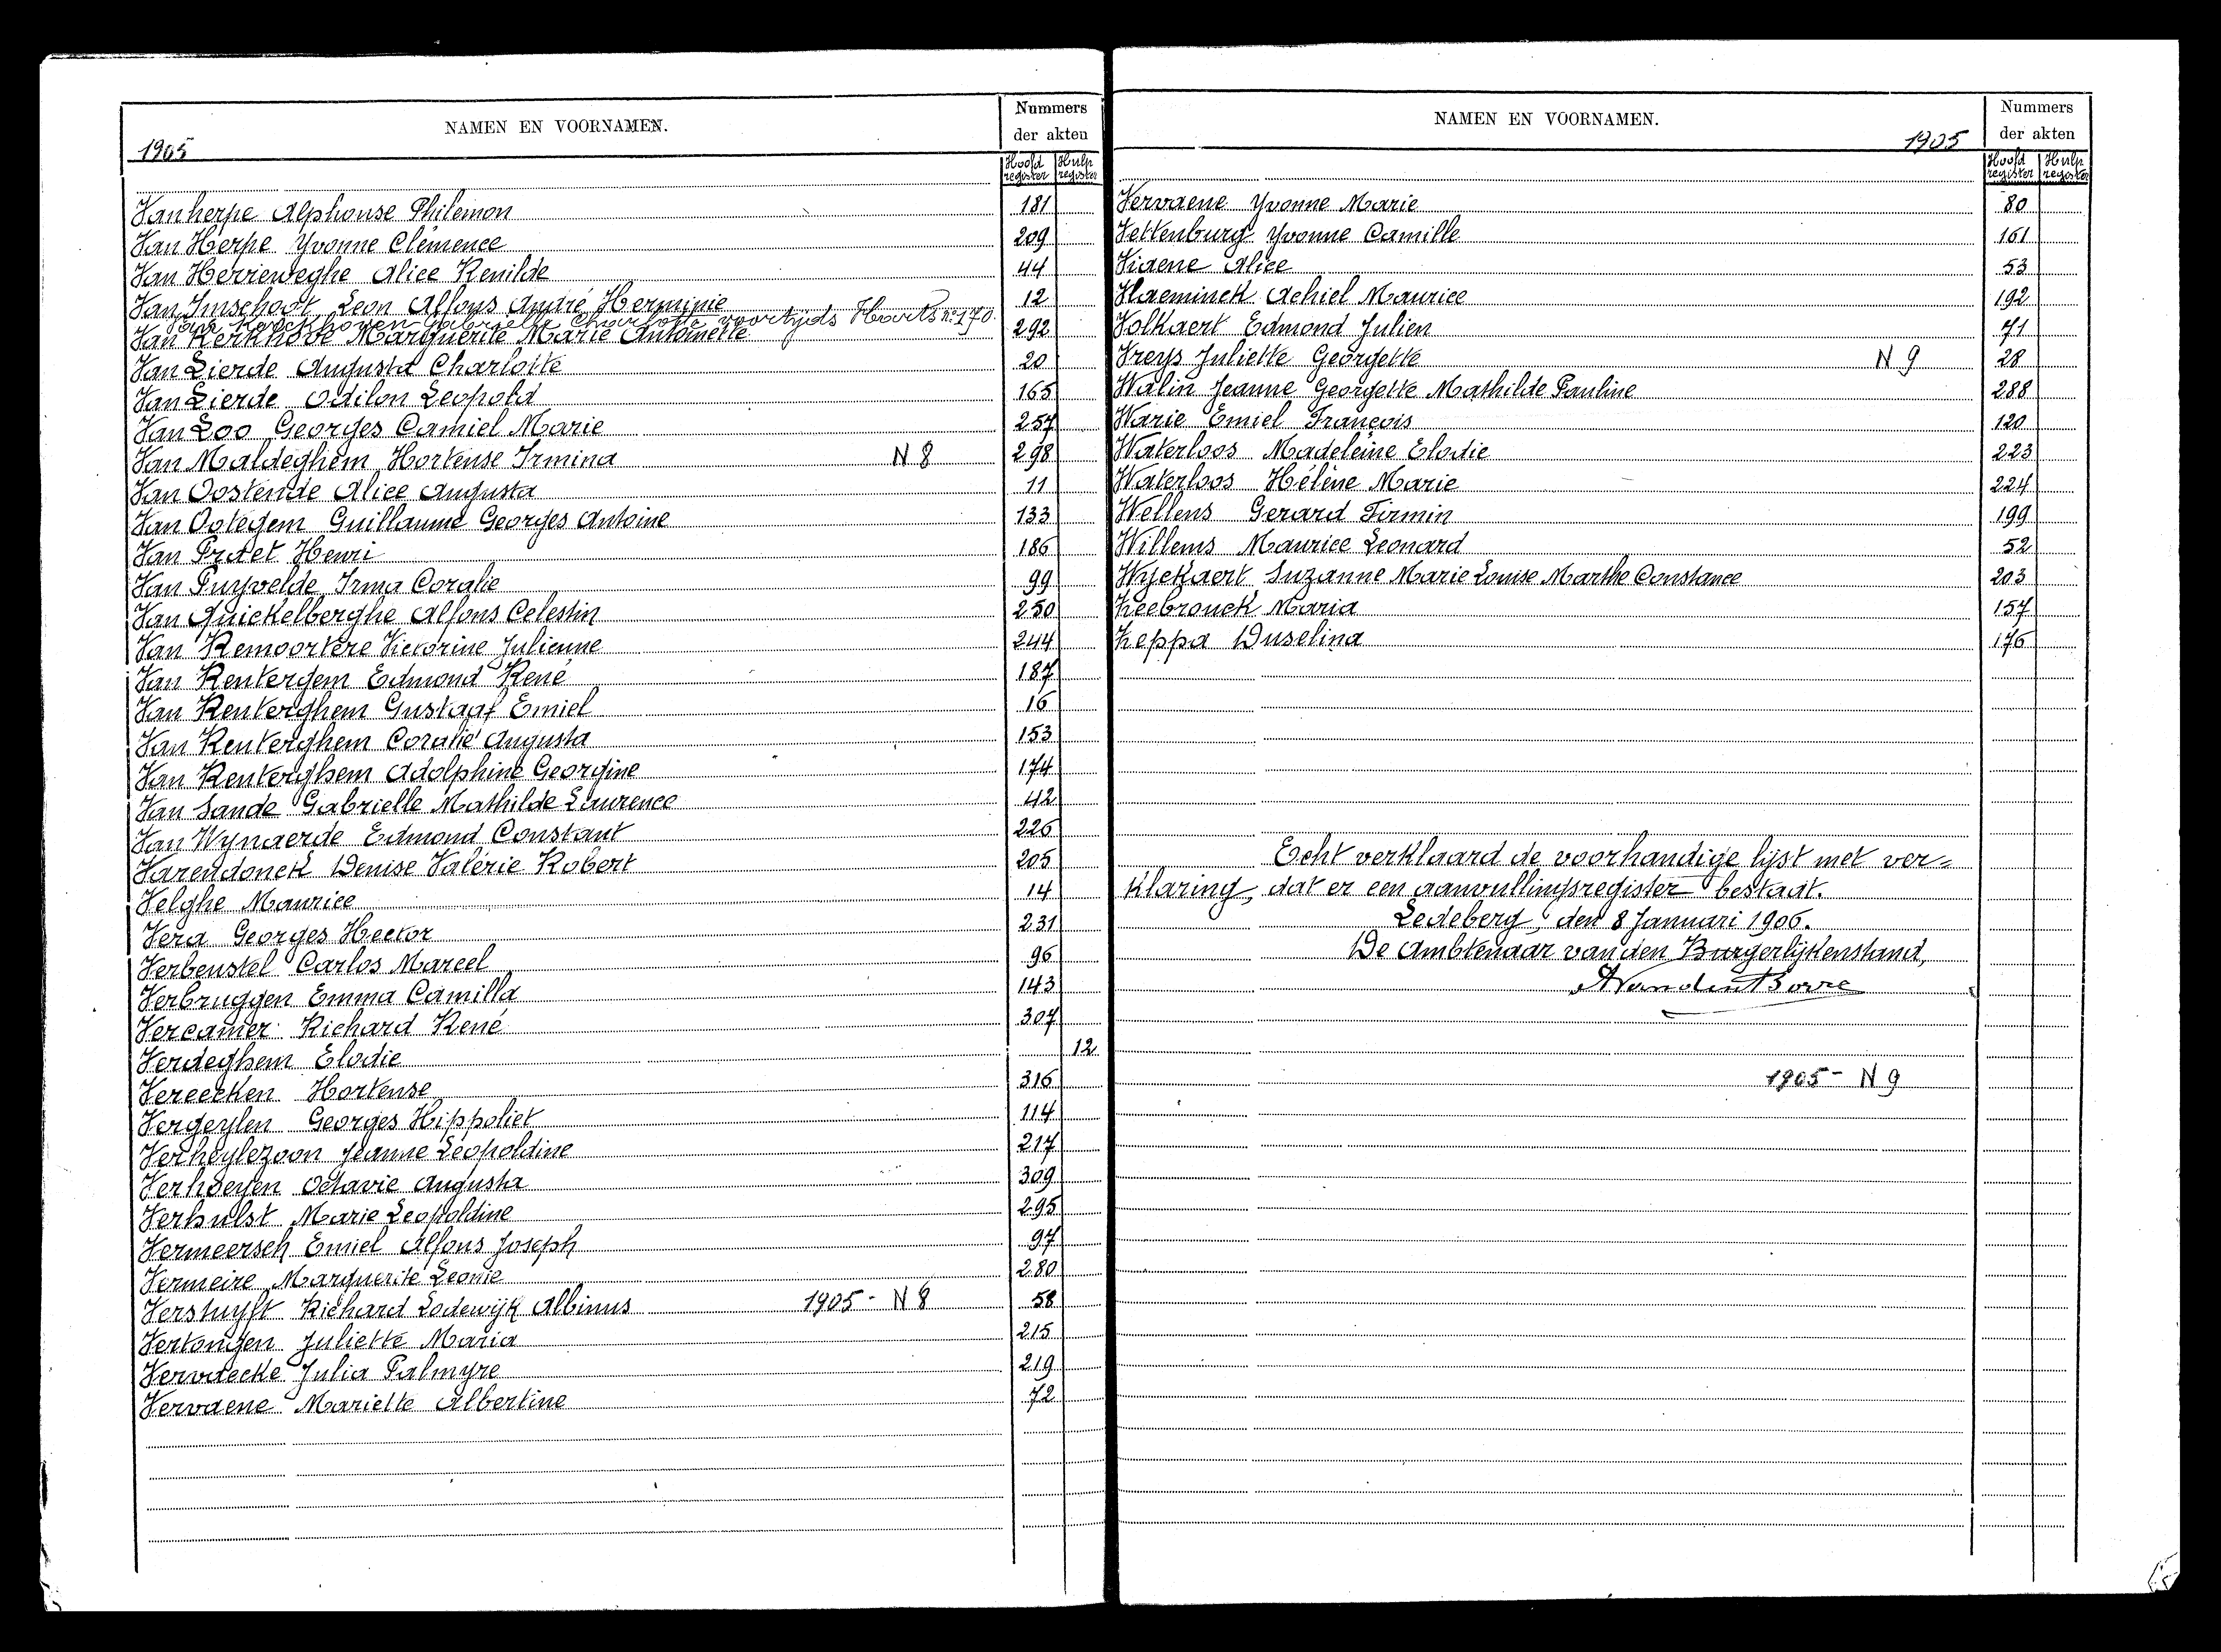 NAMEN EN VOORNAMEN.
Nummers
der akten
1905
Hoofd register
Hulp register
Vanherpe Alphonse Philemon 181
Van Herpe Yvonne Clémence 209
Van Herreweghe Alice Renilde 44
Van Imschoot Leon Alfons André Herminie 12
Van Kerckhoven Gabrielle Charlotte voortijds Hoorts n° 170.
Van Kerkhove Marguerite Marie Antoinette 292
Van Lierde Augusta Charlotte 20
Van Lierde Odilon Leopold 165
Van Loo Georges Camiel Marie 257
Van Maldeghem Hortense Irmina N 8 298
Van Oostende Alice Augusta 11
Van Ootegem Guillaume Georges Antoine 133
Van Praet Henri 186
Van Puyvelde Irma Coralie 99
Van Quickelberghe Alfons Celestin 250
Van Remoortere Victorine Julienne 244
Van Rentergem Edmond René 187
Van Renterghem Gustaaf Emiel 16
Van Renterghem Coralie Augusta 153
Van Renterghem Adolphine Georgine 174
Van Sande Gabrielle Mathilde Laurence 42
Van Wynaerde Edmond Constant 226
Varendonck Denise Valérie Robert 205
Velghe Maurice 14
Vera Georges Hector 231
Verbeustel Carlos Marcel 96
Verbruggen Emma Camilla 143
Vercamer Richard René 307
Verdeghem Elodie 12
Vereecken Hortense 316
Vergeylen Georges Hippoliet 114
Verheylezoon Jeanne Léopoldine 217
Verhoeyen Octavie Augusta 309
Verhulst Marie Leopoldine 295
Vermeersch Emiel Alfons Joseph 97
Vermeire Marguerite Leonie 280
Verstuyft Richard Lodewijk Albinus 1905 - N 8 58
Vertongen Juliette Maria 215
Vervaecke Julia Palmyre 219
Vervaene Mariette Albertine 72
NAMEN EN VOORNAMEN.
1905
Nummers
der akten
Hoofd register
Hulp register
Vervaene Yvonne Marie 80
Vettenburg Yvonne Camille 161
Viaene Alice 53
Vlaeminck Achiel Maurice 192
Volkaert Edmond Julien 71
Vreys Juliette Georgette N 9 28
Walin Jeanne Georgette Mathilde Pauline 288
Warie Emiel François 120
Waterloos Madeleine Elodie 223
Waterloos Hélène Marie 224
Wellens Gerard Firmin 199
Willems Maurice Leonard 52
Wyckaert Suzanne Marie Louise Marthe Constance 203
Zeebrouck Maria 157
Zeppa Duselina 176
Echt verklaard de voorhandige lijst met ver=
klaring, dat er een aanvullingsregister bestaat.
Ledeberg, den 8 Januari 1906.
De Ambtenaar van den Burgerlijkenstand,
1905 - N 9